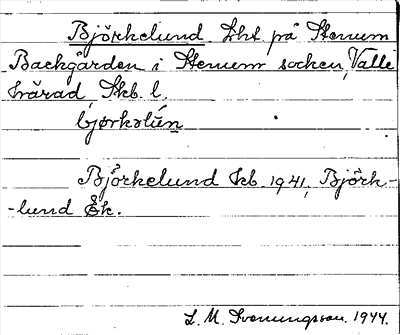 Björkelund. Lht på Stenum
Backgården i Stenum socken, Valle
härad, Skb. l.
bjørkəlún
Björkelund kb. 1941, Björk-
-lund Ek.
L. M. Svenungsson. 1944.